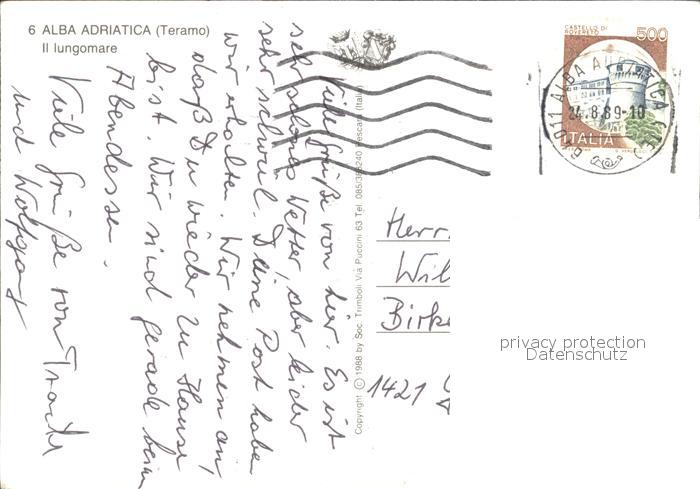 6 ALBA ADRIATICA (Teramo)
Il lungomare
Viele Grüße von hier. Es ist
sehr schönes Wetter, aber leider
sehr schwül. Deine Post haben
wir erhalten. Wir nehmen an,
daß Du wieder zu Hause
bist. Wir sind gerade beim
Abendessen.
Viele Grüße von
und Wolfgang
Copyright © 1988 by Soc. Trimboli Via Puccini 63 Tel. 085/ Pescara (Italia)
CASTELLO DI
ROVERETO
500
ITALIA
64011 ALBA ADRIATICA (TE)
24.8.89-10
Herrn
Wil
Birke
1421
privacy protection
Datenschutz